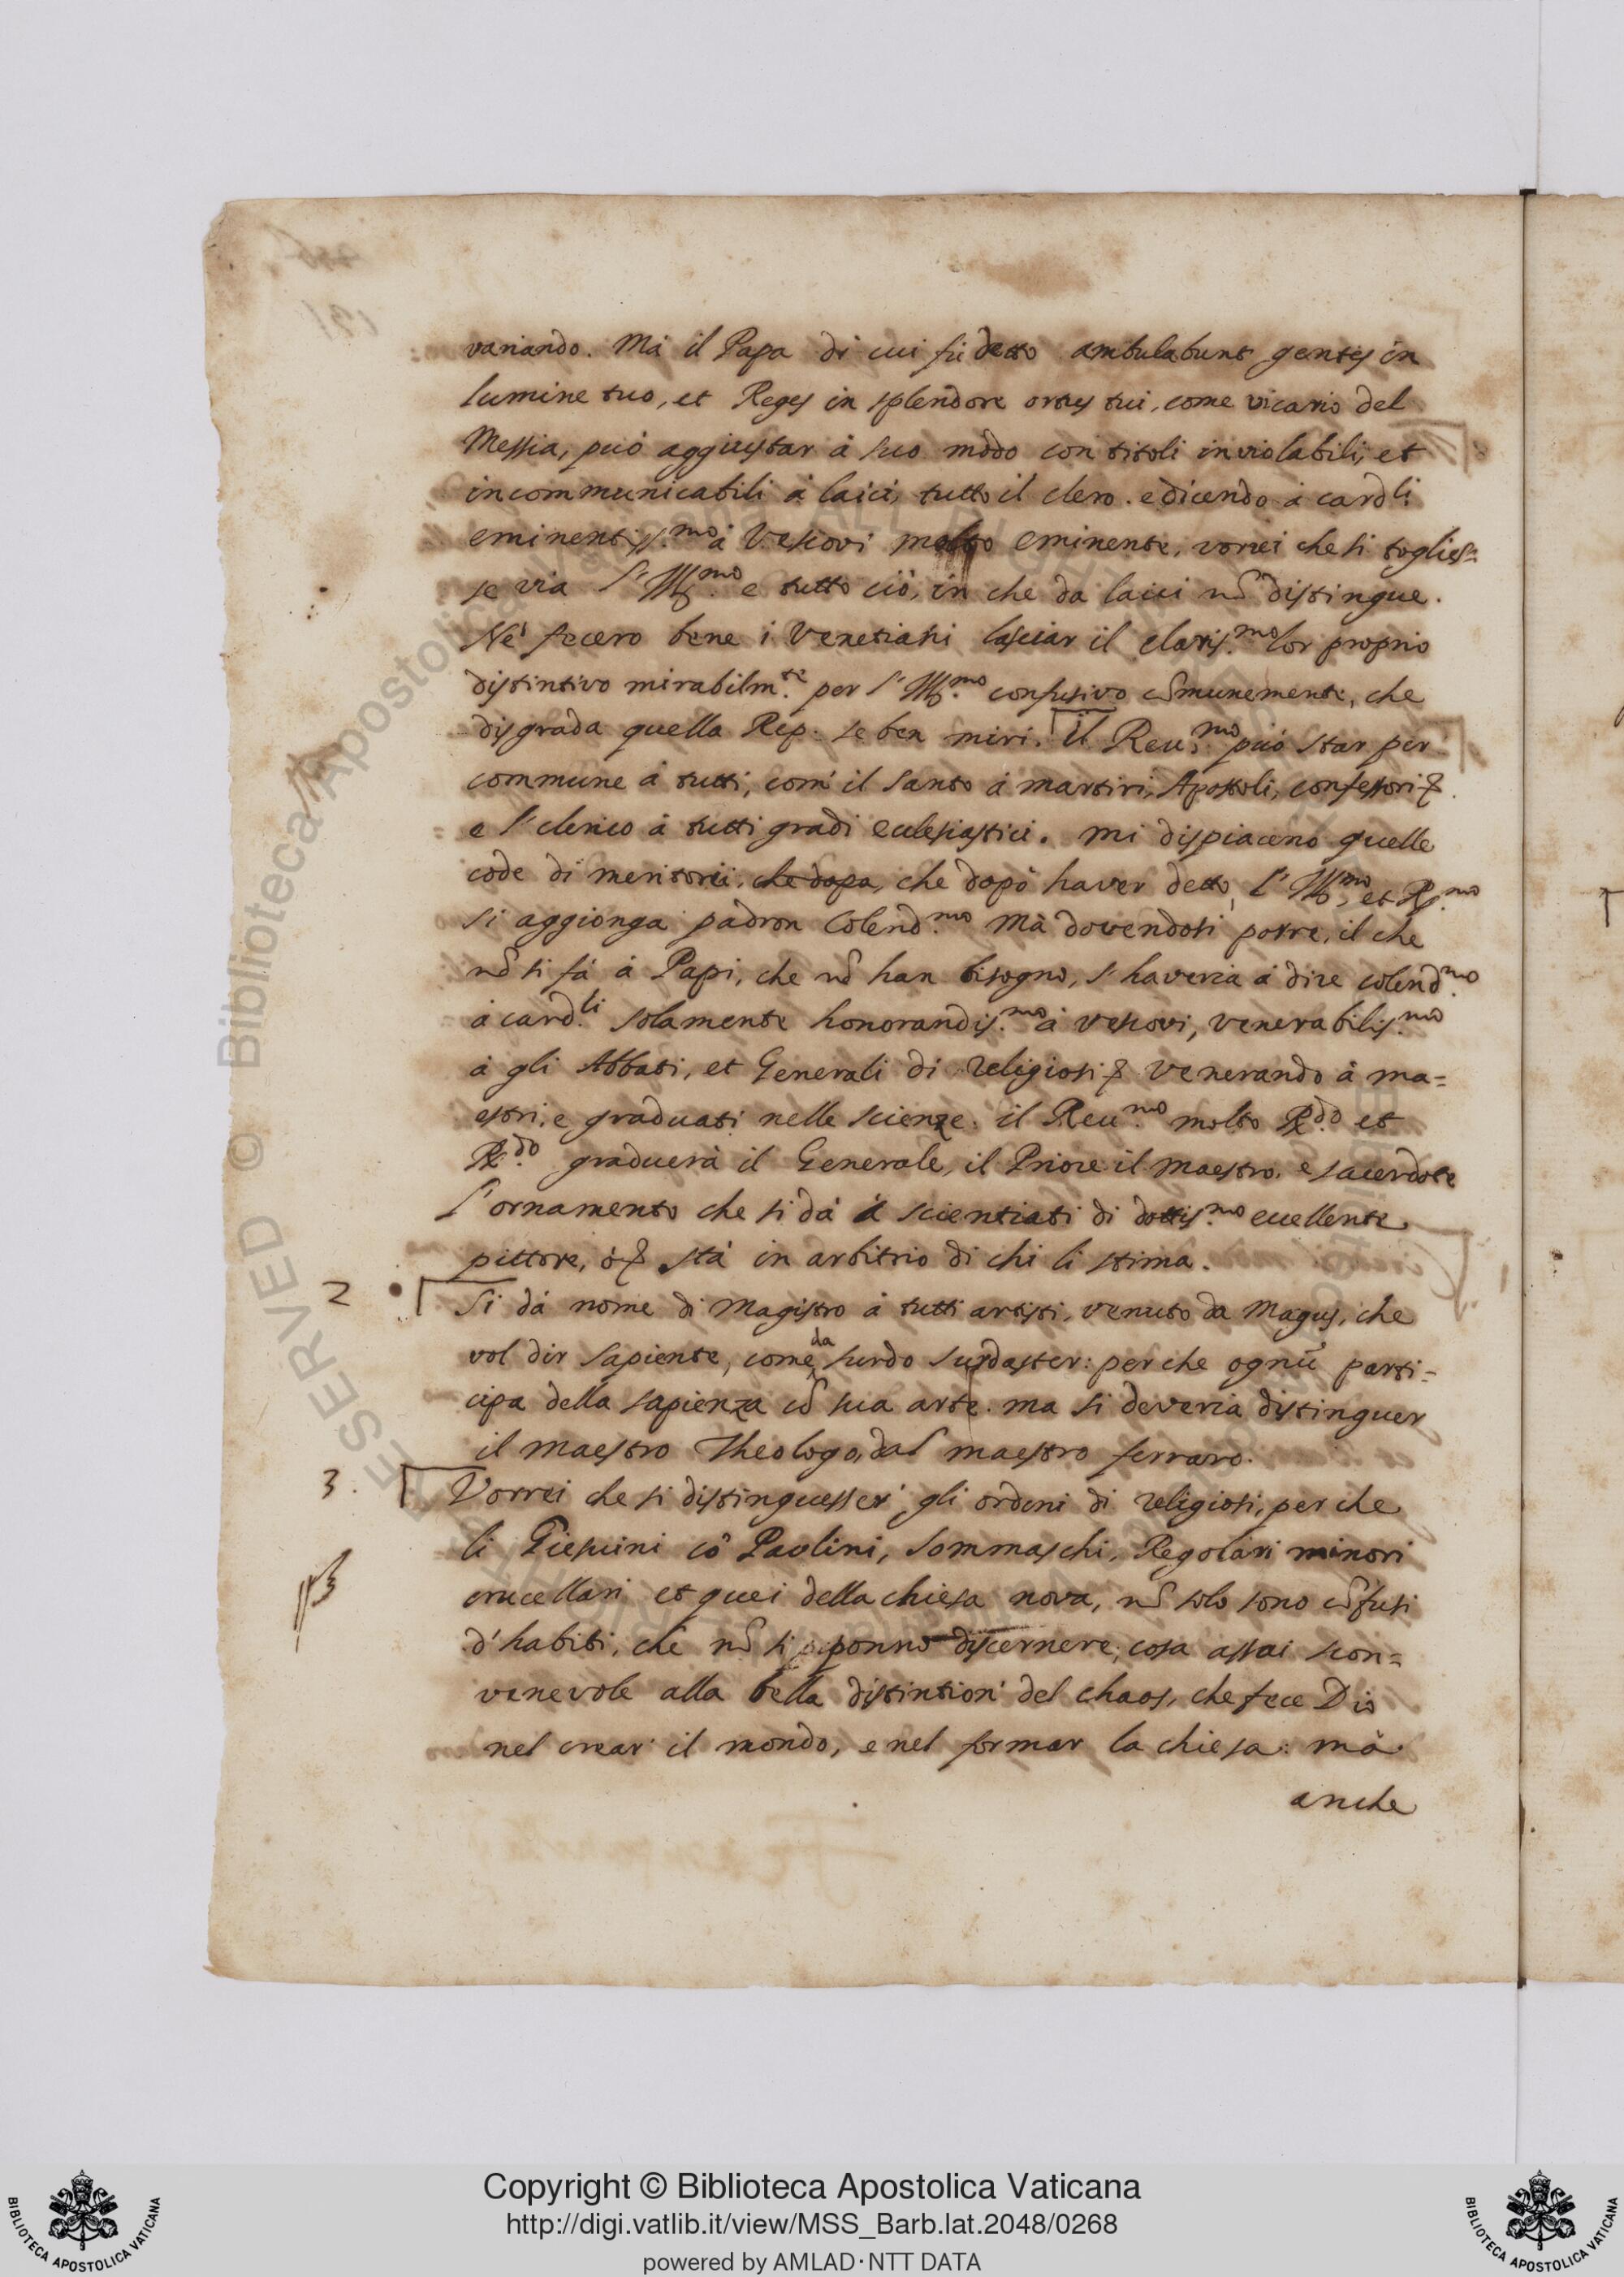 variando. Mà il Papa di cui fù detto ambulabunt gentes in
lumine tuo, et Reges in splendore ortus tui, come vicario del
Messia, può aggiustar à suo modo con titoli inviolabili, et
incommunicabili à laici, tutto il clero. e dicendo à cardli
eminentiss.mo à Vescovi molto eminente, vorrei che si toglies=
se via l'Ill.mo e tutto ciò, in che da laici nõ distingue.
Nè fecero bene i Venetiani lasciar il claris.mo lor proprio
distintivo mirabilm.te per l'Ill.mo confusivo cõmunemente, che
disgrada quella Rep. se ben miri. il Reu.mo può star per
commune à tutti, com' il santo à martiri, Apostoli, confessori &
e l'clerico à tutti gradi ecclesiastici. mi dispiaceno quelle
code di meritorii, che dopo, che dopò haver detto, l'Ill.mo, et R.mo
si aggionga padron Colend.mo Mà dovendosi porre, il che
nõ si fà à Papi, che nõ han bisogno, s'haveria à dire colend.mo
à card.li solamente honorandis.mo à vescovi, venerabilis.mo
à gli Abbati, et Generali di religiosi & venerando à ma=
estri, e graduati nelle scienze. il Reu.mo molto R.do et
R.do graduerà il Generale, il Priore il maestro, e sacerdote
l'ornamento che si dà à scientiati di dottis.mo eccellente
pittore, ò & stà in arbitrio di chi li stima.
2 Si dà nome di Magistro à tutti artisti, venuto da Magus, che
vol dir sapiente, come da surdo surdaster: perche ognũ parti=
cipa della sapienza cõ sua arte. ma si deveria distinguer
il maestro Theologo, dal maestro ferraro.
3. Vorrei che si distinguesser' gli ordini di religiosi, perche
li Giesuini cõ Paolini, Sommaschi, Regolari minori
crucellari et quei della chiesa nova, nõ solo sono cõfusi
d'habiti, che nõ si ponno discernere, cosa assai scon=
venevole alla bella distintion' del chaos, che fece Dio
nel crear il mondo, e nel formar la chiesa: mà
anche
RESERVED © Biblioteca Apostolica Vaticana
Copyright © Biblioteca Apostolica Vaticana
http://digi.vatlib.it/view/MSS_Barb.lat.2048/0268
powered by AMLAD·NTT DATA
BIBLIOTECA APOSTOLICA VATICANA
BIBLIOTECA APOSTOLICA VATICANA